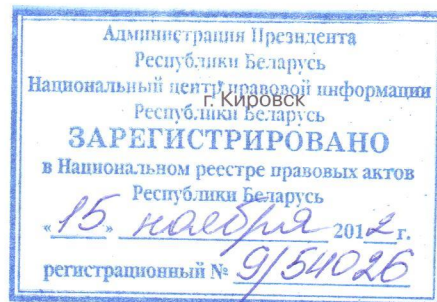 Администрация Президента
Республики Беларусь
Национальный центр правовой информации
г. Кировск
Республики Беларусь
ЗАРЕГИСТРИРОВАНО
в Национальном реестре правовых актов
Республики Беларусь
«15» ноября 2012 г.
регистрационный № 9/54026